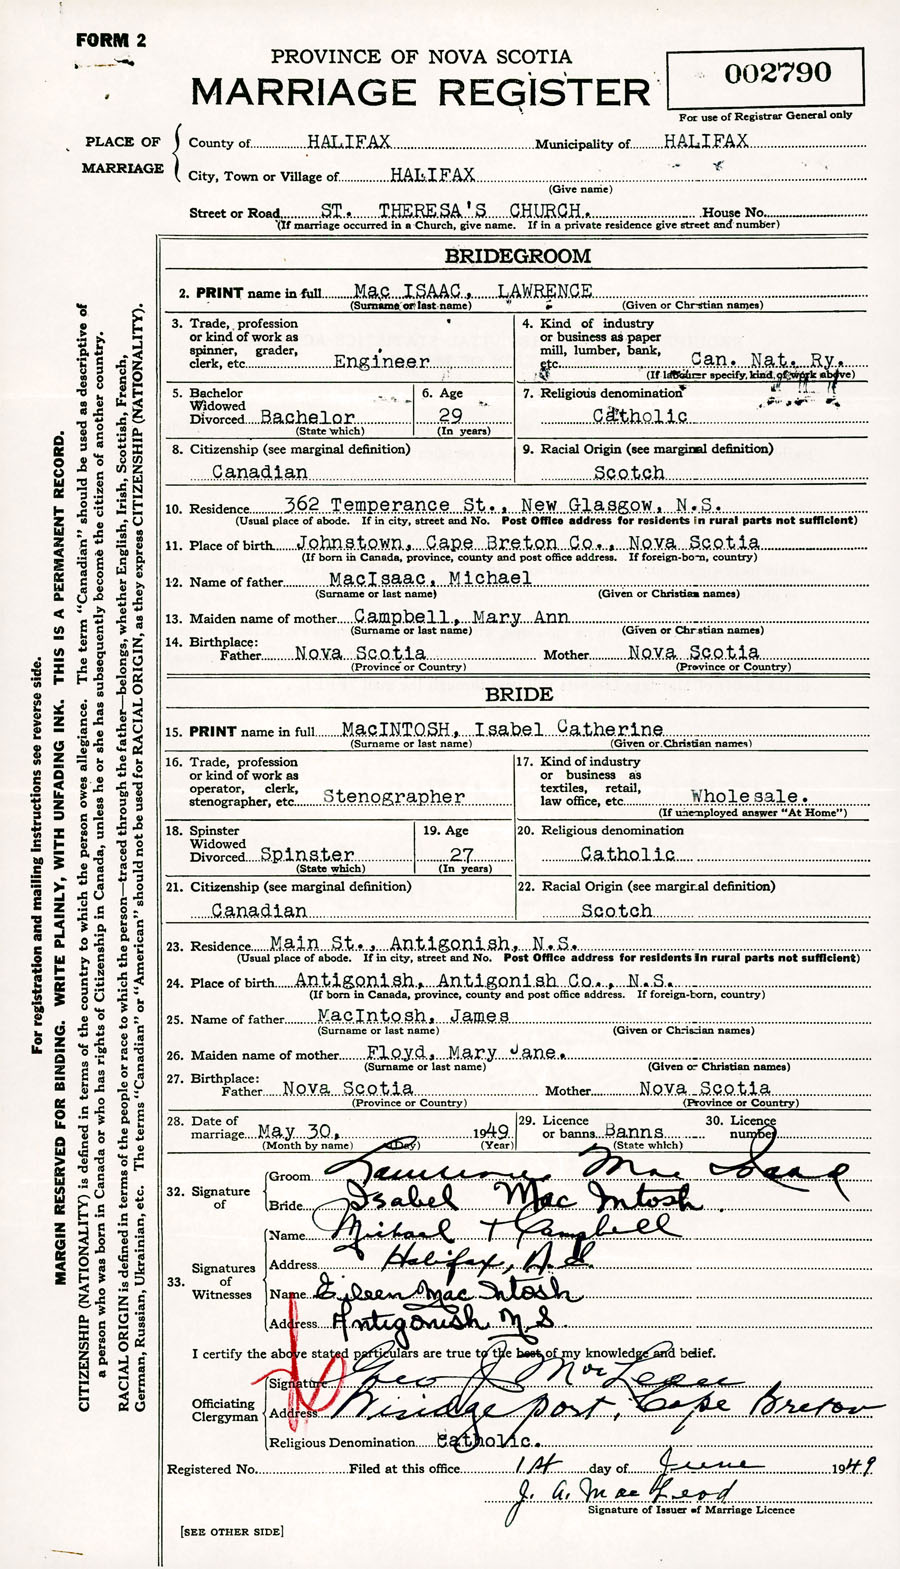 FORM 2
PROVINCE OF NOVA SCOTIA
MARRIAGE REGISTER
002790
For use of Registrar General only
PLACE OF MARRIAGE
County of HALIFAX Municipality of HALIFAX
City, Town or Village of HALIFAX
(Give name)
Street or Road ST. THERESA'S CHURCH. House No.
(If marriage occurred in a Church, give name. If in a private residence give street and number)
BRIDEGROOM
2. PRINT name in full Mac ISAAC, LAWRENCE
(Surname or last name) (Given or Christian names)
3. Trade, profession
or kind of work as
spinner, grader,
clerk, etc. Engineer
4. Kind of industry
or business as paper
mill, lumber, bank,
etc. Can. Nat. Ry.
(If labourer specify, kind of work above)
5. Bachelor
Widowed
Divorced Bachelor
(State which)
6. Age
29
(In years)
7. Religious denomination
Catholic
8. Citizenship (see marginal definition)
Canadian
9. Racial Origin (see marginal definition)
Scotch
10. Residence 362 Temperance St., New Glasgow, N.S.
(Usual place of abode. If in city, street and No. Post Office address for residents in rural parts not sufficient)
11. Place of birth Johnstown, Cape Breton Co., Nova Scotia
(If born in Canada, province, county and post office address. If foreign-born, country)
12. Name of father MacIsaac, Michael
(Surname or last name) (Given or Christian names)
13. Maiden name of mother Campbell, Mary Ann
(Surname or last name) (Given or Christian names)
14. Birthplace:
Father Nova Scotia Mother Nova Scotia
(Province or Country) (Province or Country)
BRIDE
15. PRINT name in full MacINTOSH, Isabel Catherine
(Surname or last name) (Given or Christian names)
16. Trade, profession
or kind of work as
operator, clerk,
stenographer, etc. Stenographer
17. Kind of industry
or business as
textiles, retail,
law office, etc. Wholesale.
(If unemployed answer "At Home")
18. Spinster
Widowed
Divorced Spinster
(State which)
19. Age
27
(In years)
20. Religious denomination
Catholic
21. Citizenship (see marginal definition)
Canadian
22. Racial Origin (see marginal definition)
Scotch
23. Residence Main St., Antigonish, N.S.
(Usual place of abode. If in city, street and No. Post Office address for residents in rural parts not sufficient)
24. Place of birth Antigonish, Antigonish Co., N.S.
(If born in Canada, province, county and post office address. If foreign-born, country)
25. Name of father MacIntosh, James
(Surname or last name) (Given or Christian names)
26. Maiden name of mother Floyd, Mary Jane.
(Surname or last name) (Given or Christian names)
27. Birthplace:
Father Nova Scotia Mother Nova Scotia
(Province or Country) (Province or Country)
28. Date of
marriage May 30, 1949
(Month by name) (Day) (Year)
29. Licence
or banns Banns
(State which)
30. Licence
number
32. Signature of
Groom Lawrence Mac Isaac
Bride Isabel Mac Intosh.
33. Signatures of Witnesses
Name Michael T Campbell
Address Halifax, N.S.
Name Eileen Mac Intosh
Address Antigonish N.S.
I certify the above stated particulars are true to the best of my knowledge and belief.
Officiating Clergyman
Signature Geo J. Mac Lean
Address Cape Breton
Religious Denomination Catholic.
Registered No. Filed at this office 1st day of June 1949
J. A. Mac Leod
Signature of Issuer of Marriage Licence
[SEE OTHER SIDE]
For registration and mailing instructions see reverse side.
MARGIN RESERVED FOR BINDING. WRITE PLAINLY, WITH UNFADING INK. THIS IS A PERMANENT RECORD.
CITIZENSHIP (NATIONALITY) is defined in terms of the country to which the person owes allegiance. The term "Canadian" should be used as descriptive of
a person who was born in Canada or who has rights of Citizenship in Canada, unless he or she has subsequently become the citizen of another country.
RACIAL ORIGIN is defined in terms of the people or race to which the person—traced through the father—belongs, whether English, Irish, Scottish, French,
German, Russian, Ukrainian, etc. The terms "Canadian" or "American" should not be used for RACIAL ORIGIN, as they express CITIZENSHIP (NATIONALITY).